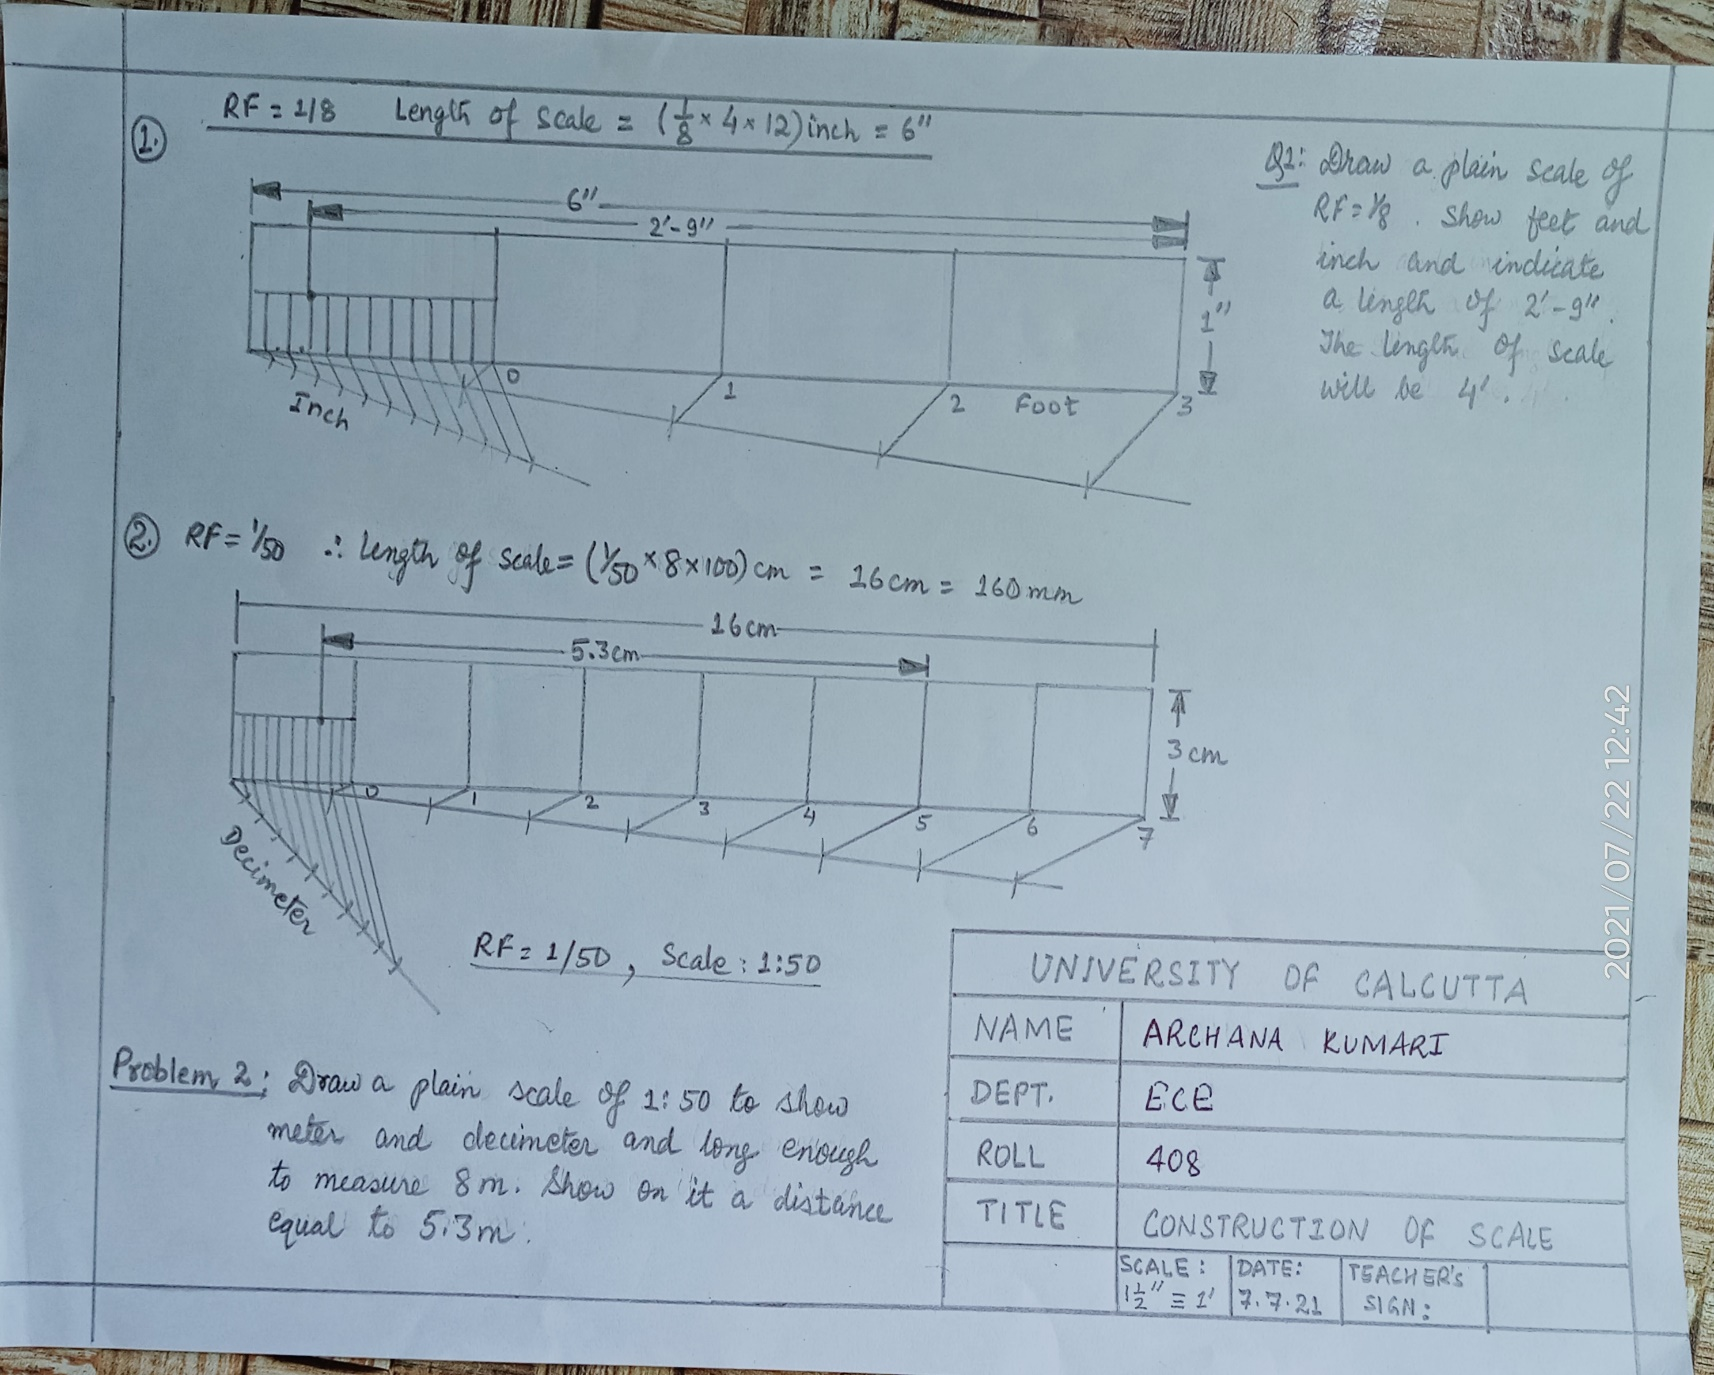 1.
RF = 1/8 Length of scale = (1/8 × 4 × 12) inch = 6"
6"
2'-9"
1"
0
1
2
Foot
3
Inch
Q1: Draw a plain scale of
RF = 1/8 . Show feet and
inch and indicate
a length of 2'-9".
The length of scale
will be 4'.
2. RF = 1/50 ∴ length of scale = (1/50 × 8 × 100) cm = 16 cm = 160 mm
16 cm
5.3 cm
3 cm
0
1
2
3
4
5
6
7
Decimeter
RF = 1/50 , Scale : 1:50
Problem 2: Draw a plain scale of 1:50 to show
meter and decimeter and long enough
to measure 8 m. Show on it a distance
equal to 5.3 m.
UNIVERSITY OF CALCUTTA
NAME ARCHANA KUMARI
DEPT. ECE
ROLL 408
TITLE CONSTRUCTION OF SCALE
SCALE : DATE: TEACHER'S
1 1/2" ≡ 1' 7.7.21 SIGN :
2021/07/22 12:42